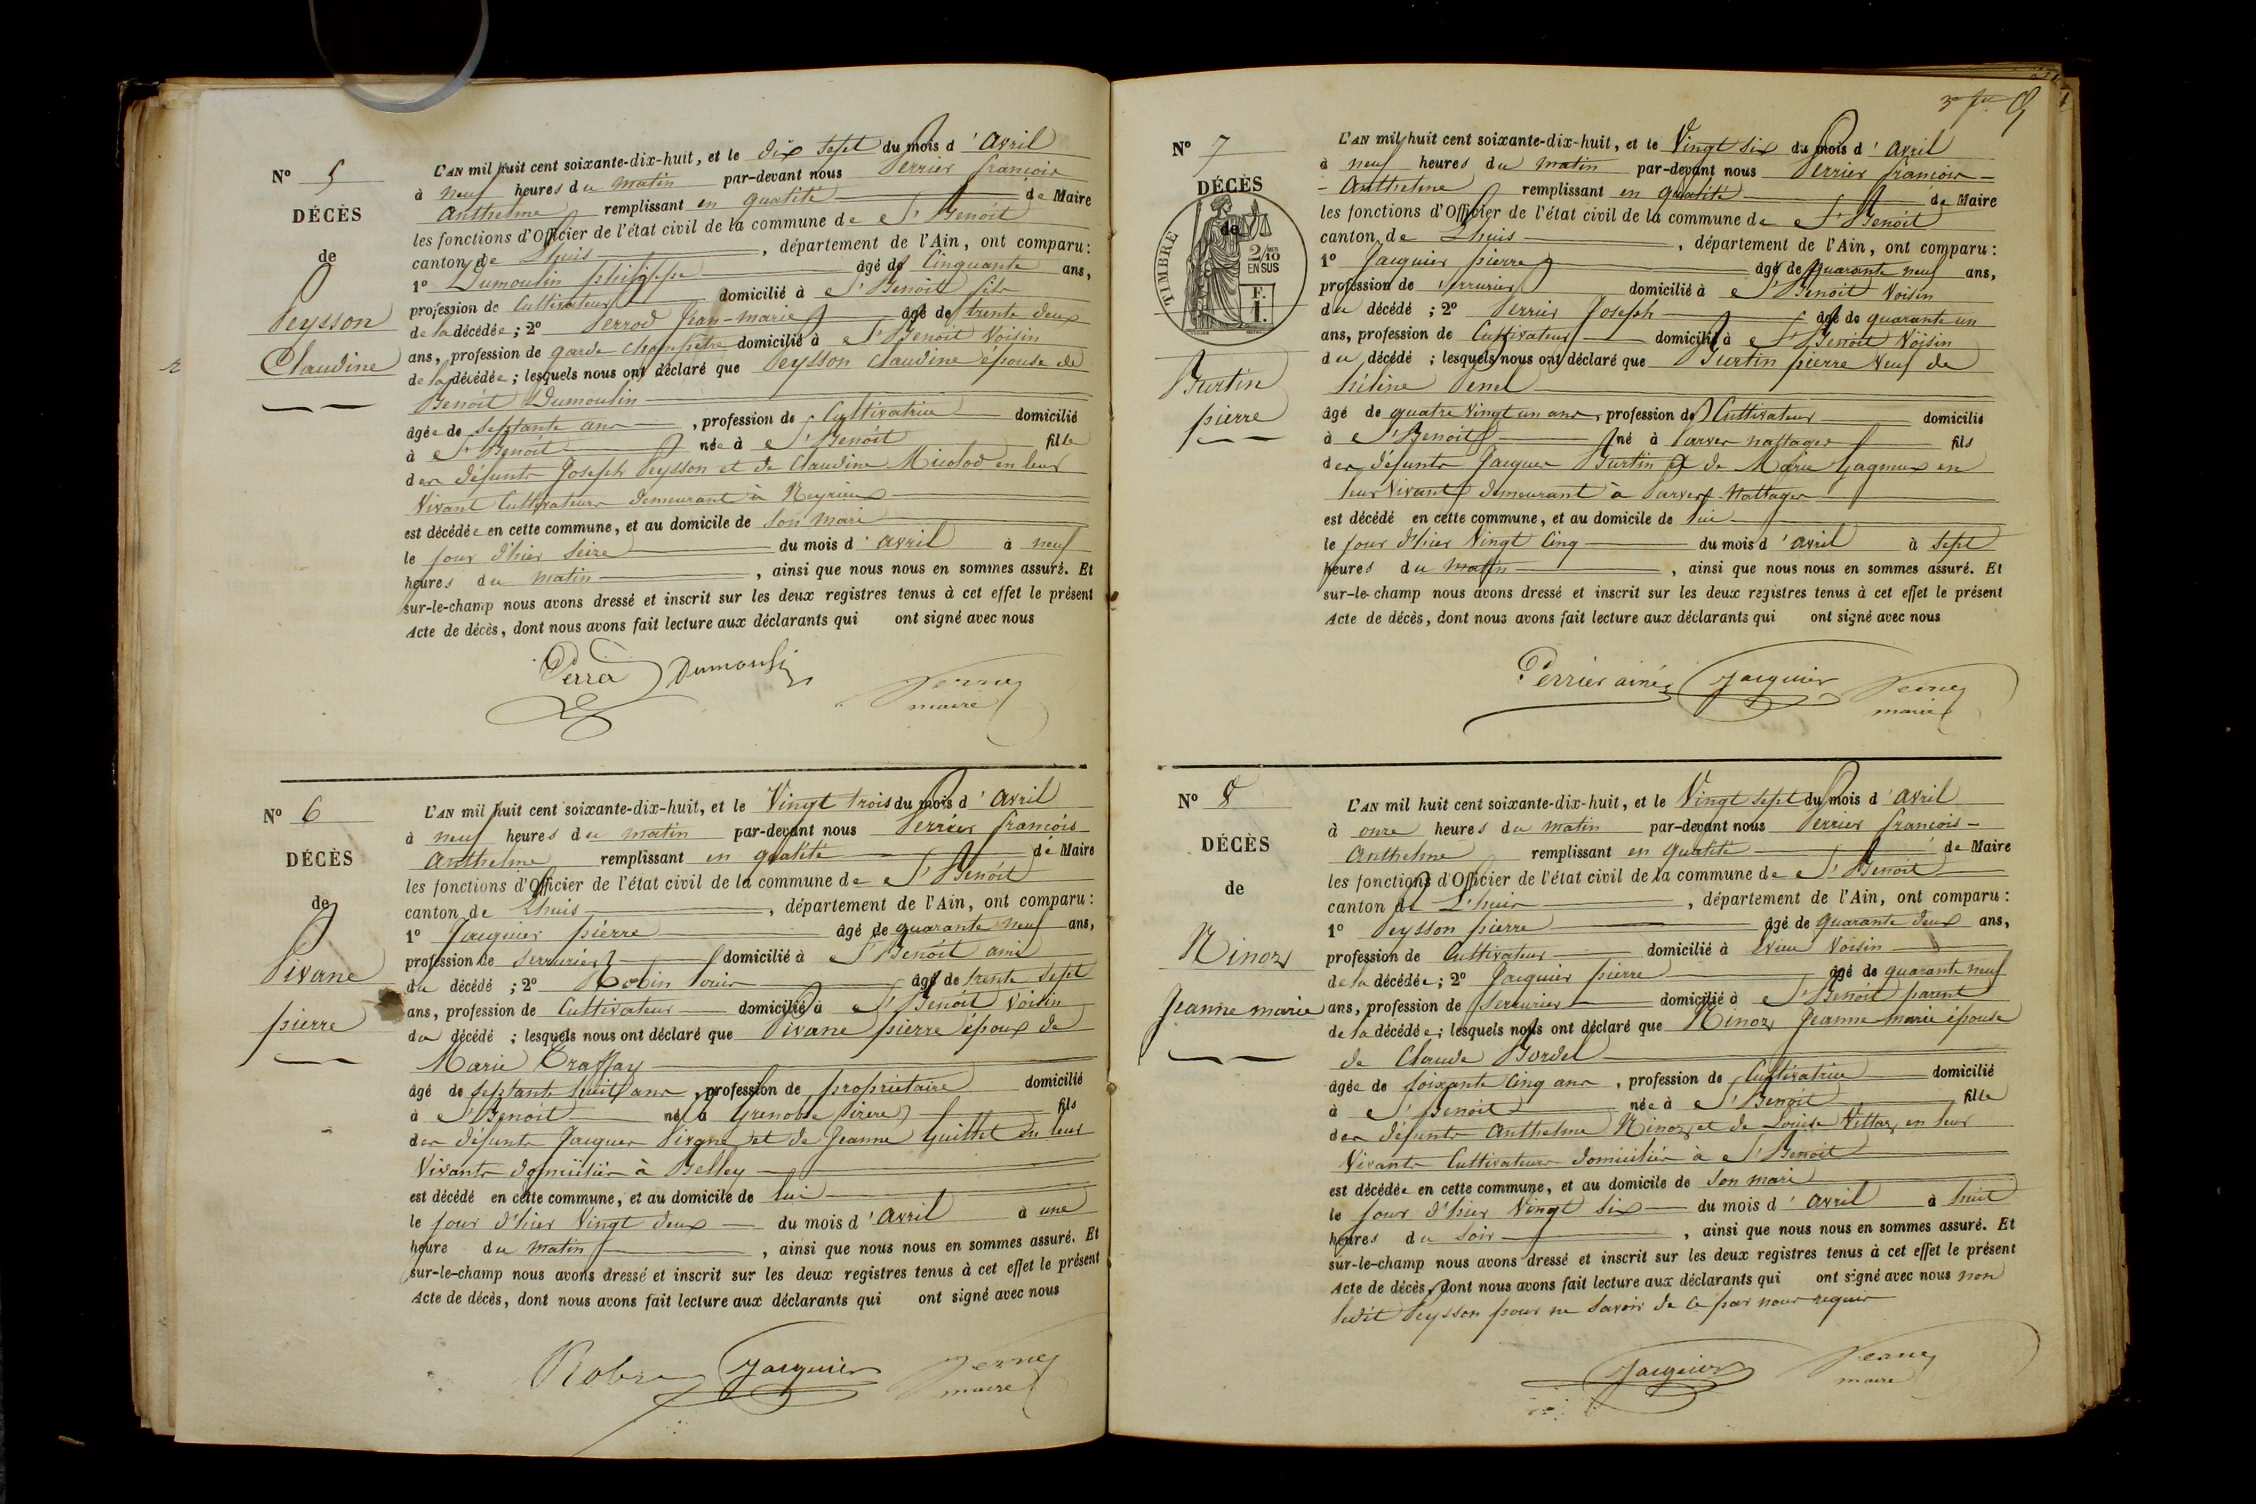 N° 5
DÉCÈS
de
Peysson
Claudine
L'AN mil huit cent soixante-dix-huit, et le dix sept du mois d'avril
à neuf heures du matin par-devant nous Perrier françois
anthelme remplissant en qualité de Maire
les fonctions d'Officier de l'état civil de la commune de St Benoît
canton de Lhuis, département de l'Ain, ont comparu :
1° Dumoulin philippe âgé de Cinquante ans,
profession de Cultivateur domicilié à St Benoît fils
de la décédée ; 2° Perrod Jean-marie âgé de trente deux
ans, profession de garde champêtre domicilié à St Benoît Voisin
de la décédée ; lesquels nous ont déclaré que Peysson Claudine épouse de
Benoît Dumoulin
âgée de septante ans, profession de Cultivatrice domicilié
à St Benoît née à St Benoît fille
des défunts Joseph Peysson et de Claudine Micolod en leur
Vivant Cultivateurs demeurant à Neyrieu
est décédée en cette commune, et au domicile de son mari
le jour d'hier Seize du mois d'avril à neuf
heures du matin, ainsi que nous nous en sommes assuré. Et
sur-le-champ nous avons dressé et inscrit sur les deux registres tenus à cet effet le présent
Acte de décès, dont nous avons fait lecture aux déclarants qui ont signé avec nous
Dumoulin
maire
N° 6
DÉCÈS
de
Pivane
pierre
L'AN mil huit cent soixante-dix-huit, et le Vingt trois du mois d'avril
à neuf heures du matin par-devant nous Perrier françois
anthelme remplissant en qualité de Maire
les fonctions d'Officier de l'état civil de la commune de St Benoît
canton de Lhuis, département de l'Ain, ont comparu :
1° Jacquier pierre âgé de quarante neuf ans,
profession de serrurier domicilié à St Benoît ami
du décédé ; 2° Robin Louis âgé de trente sept
ans, profession de Cultivateur domicilié à St Benoît voisin
du décédé ; lesquels nous ont déclaré que Pivane pierre époux de
Marie Traffay
âgé de septante huit ans, profession de propriétaire domicilié
à St Benoît né à Grenoble isère fils
des défunts Jacques Pivane et de Jeanne Guillet en leur
Vivants domiciliés à Belley
est décédé en cette commune, et au domicile de lui
le jour d'hier Vingt deux du mois d'avril à une
heure du matin, ainsi que nous nous en sommes assuré. Et
sur-le-champ nous avons dressé et inscrit sur les deux registres tenus à cet effet le présent
Acte de décès, dont nous avons fait lecture aux déclarants qui ont signé avec nous
Jacquier
maire
N° 7
DÉCÈS
de
TIMBRE
2/10
EN SUS
F.
1.
Burtin
pierre
L'AN mil huit cent soixante-dix-huit, et le Vingt six du mois d'avril
à neuf heures du matin par-devant nous Perrier françois
anthelme remplissant en qualité de Maire
les fonctions d'Officier de l'état civil de la commune de St Benoît
canton de Lhuis, département de l'Ain, ont comparu :
1° Jacquier pierre âgé de quarante neuf ans,
profession de serrurier domicilié à St Benoît Voisin
du décédé ; 2° Perrier Joseph âgé de quarante un
ans, profession de Cultivateur domicilié à St Benoît Voisin
du décédé ; lesquels nous ont déclaré que Burtin pierre Veuf de
hélène
âgé de quatre vingt un ans, profession de Cultivateur domicilié
à St Benoît né à Parves nattages fils
des défunts Jacques Burtin et de Marie en
leur Vivant demeurant à Parves Nattages
est décédé en cette commune, et au domicile de lui
le jour d'hier Vingt Cinq du mois d'avril à sept
heures du matin, ainsi que nous nous en sommes assuré. Et
sur-le-champ nous avons dressé et inscrit sur les deux registres tenus à cet effet le présent
Acte de décès, dont nous avons fait lecture aux déclarants qui ont signé avec nous
Perrier ainé Jacquier
maire
N° 8
DÉCÈS
de
Ninoz
Jeanne marie
L'AN mil huit cent soixante-dix-huit, et le Vingt sept du mois d'avril
à onze heures du matin par-devant nous Perrier françois
anthelme remplissant en qualité de Maire
les fonctions d'Officier de l'état civil de la commune de St Benoît
canton de L'huis, département de l'Ain, ont comparu :
1° Peysson pierre âgé de quarante deux ans,
profession de Cultivateur domicilié à Evieu Voisin
de la décédée ; 2° Jacquier pierre âgé de quarante neuf
ans, profession de serrurier domicilié à St Benoît parent
de la décédée ; lesquels nous ont déclaré que Ninoz Jeanne marie épouse
de Claude Bordel
âgée de soixante Cinq ans, profession de Cultivatrice domicilié
à St Benoît née à St Benoît fille
des défunts Anthelme Ninoz et de Louise Vittoz en leur
Vivants Cultivateurs domiciliés à St Benoît
est décédée en cette commune, et au domicile de son mari
le jour d'hier Vingt six du mois d'avril à huit
heures du soir, ainsi que nous nous en sommes assuré. Et
sur-le-champ nous avons dressé et inscrit sur les deux registres tenus à cet effet le présent
Acte de décès, dont nous avons fait lecture aux déclarants qui ont signé avec nous non
ledit Peysson pour ne savoir de ce par nous requis
Jacquier
maire